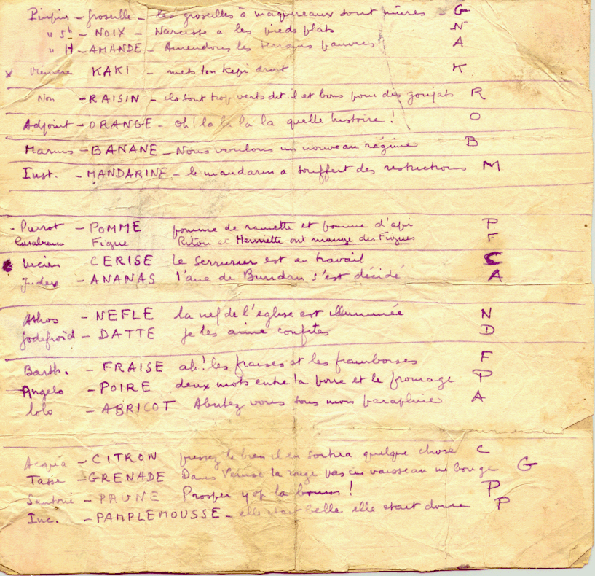 Pimpin - groseille - les groseilles à maquereaux sont mûres - G
" St - NOIX - Narcisse a les pieds plats N
" H - AMANDE - Amendones les pauvres! A
x KAKI - mets ton képi droit K
Non - RAISIN - ils sont trop verts dit il et bons pour des goujats R
Adjoint - ORANGE - Oh la la la la quelle histoire! O
Marius - BANANE - Nous voulons un nouveau régime B
Inst. - MANDARINE - le mandarin a souffert des restrictions M
- Pierrot - POMME pomme de rainette et pomme d'api P
Figue et Henriette ont mangé des figues F
Lucien CERISE le serrurier est au travail C
Judex - ANANAS l'âne de Buridan s'est décidé A
Athos - NEFLE la nef de l'église est illuminée N
Godefroid - DATTE je les aime confites D
Barth. - FRAISE ah! les fraises et les framboises F
Angelo - POIRE deux mots entre la poire et le fromage P
Lolo - ABRICOT Abritez vous sous mon parapluie A
Acacia - CITRON pressez le bien il en sortira quelque chose C
- GRENADE Dans Venise la rouge pas un vaisseau ne bouge G
- PRUNE yop la boum! P
Inc. - PAMPLEMOUSSE - elle était belle elle était douce P